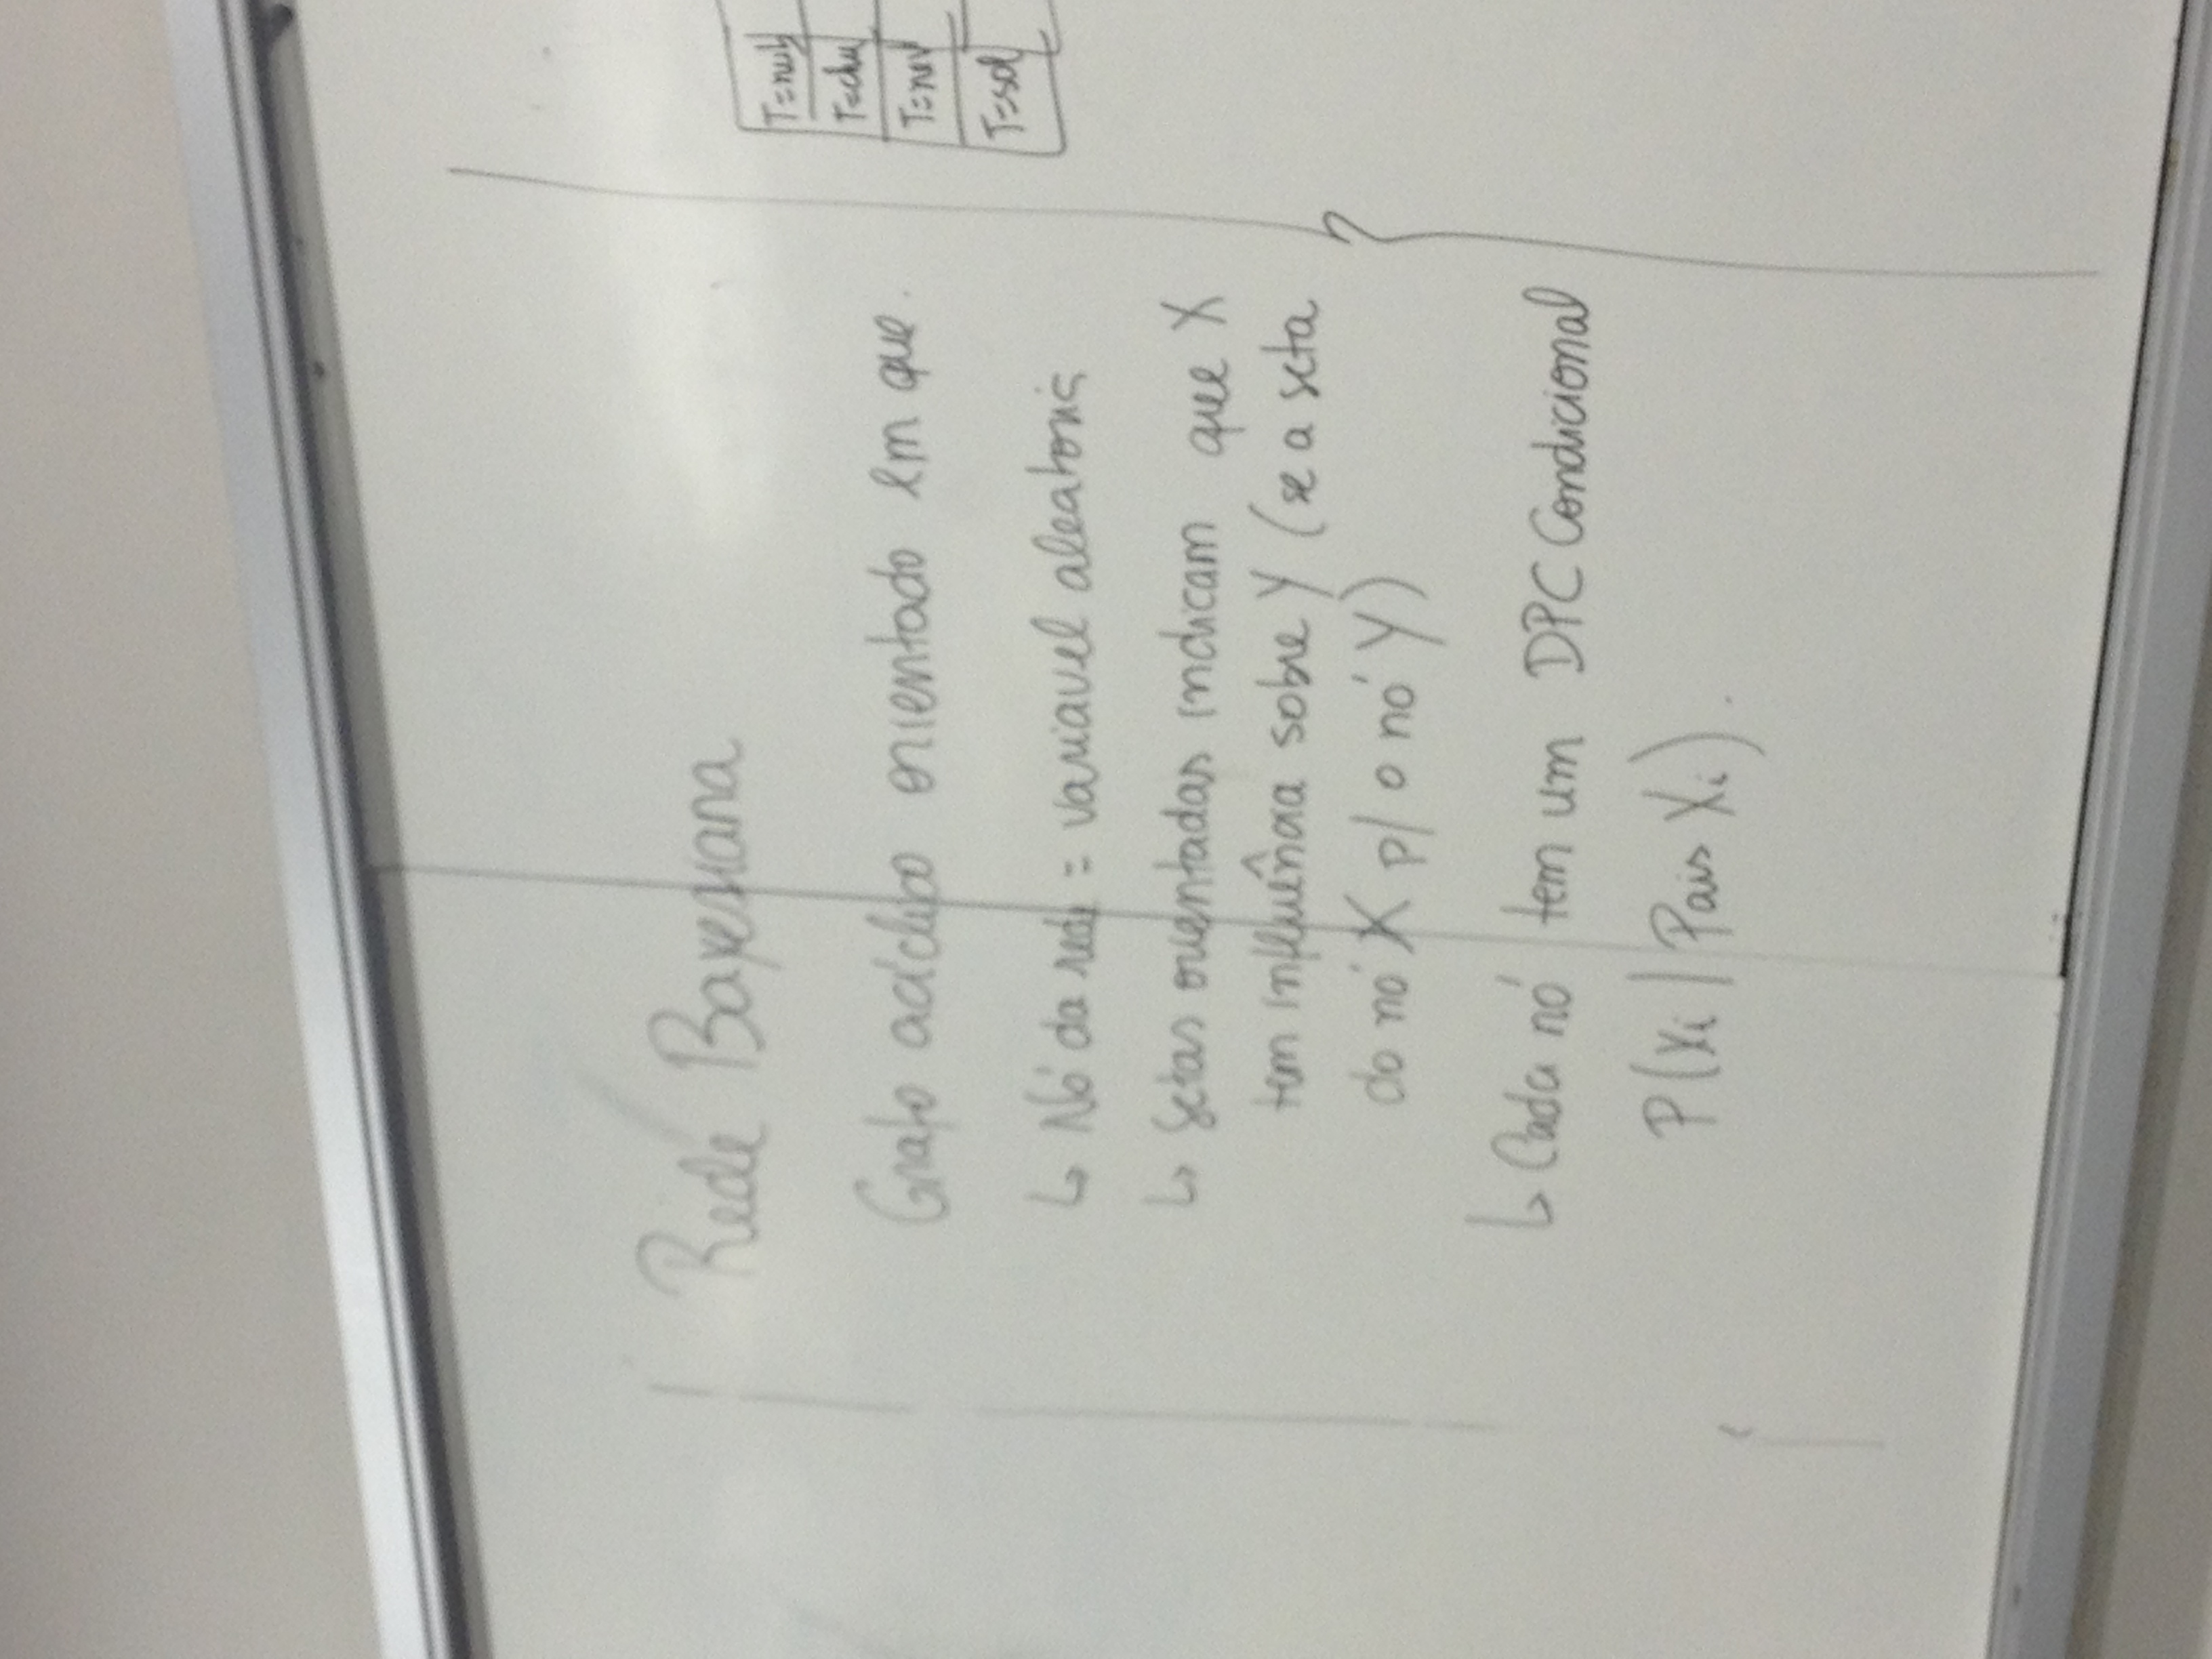 Rede Bayesiana
Grafo acíclico orientado em que
↳ Nó da rede = variavel aleatoria
↳ Setas orientadas indicam que X
tem influência sobre Y (se a seta
do nó X p/ o nó Y)
↳ Cada nó tem um DPC Condicional
P(Xi | Pais Xi).
T=nub
T=chu
T=nev
T=sol